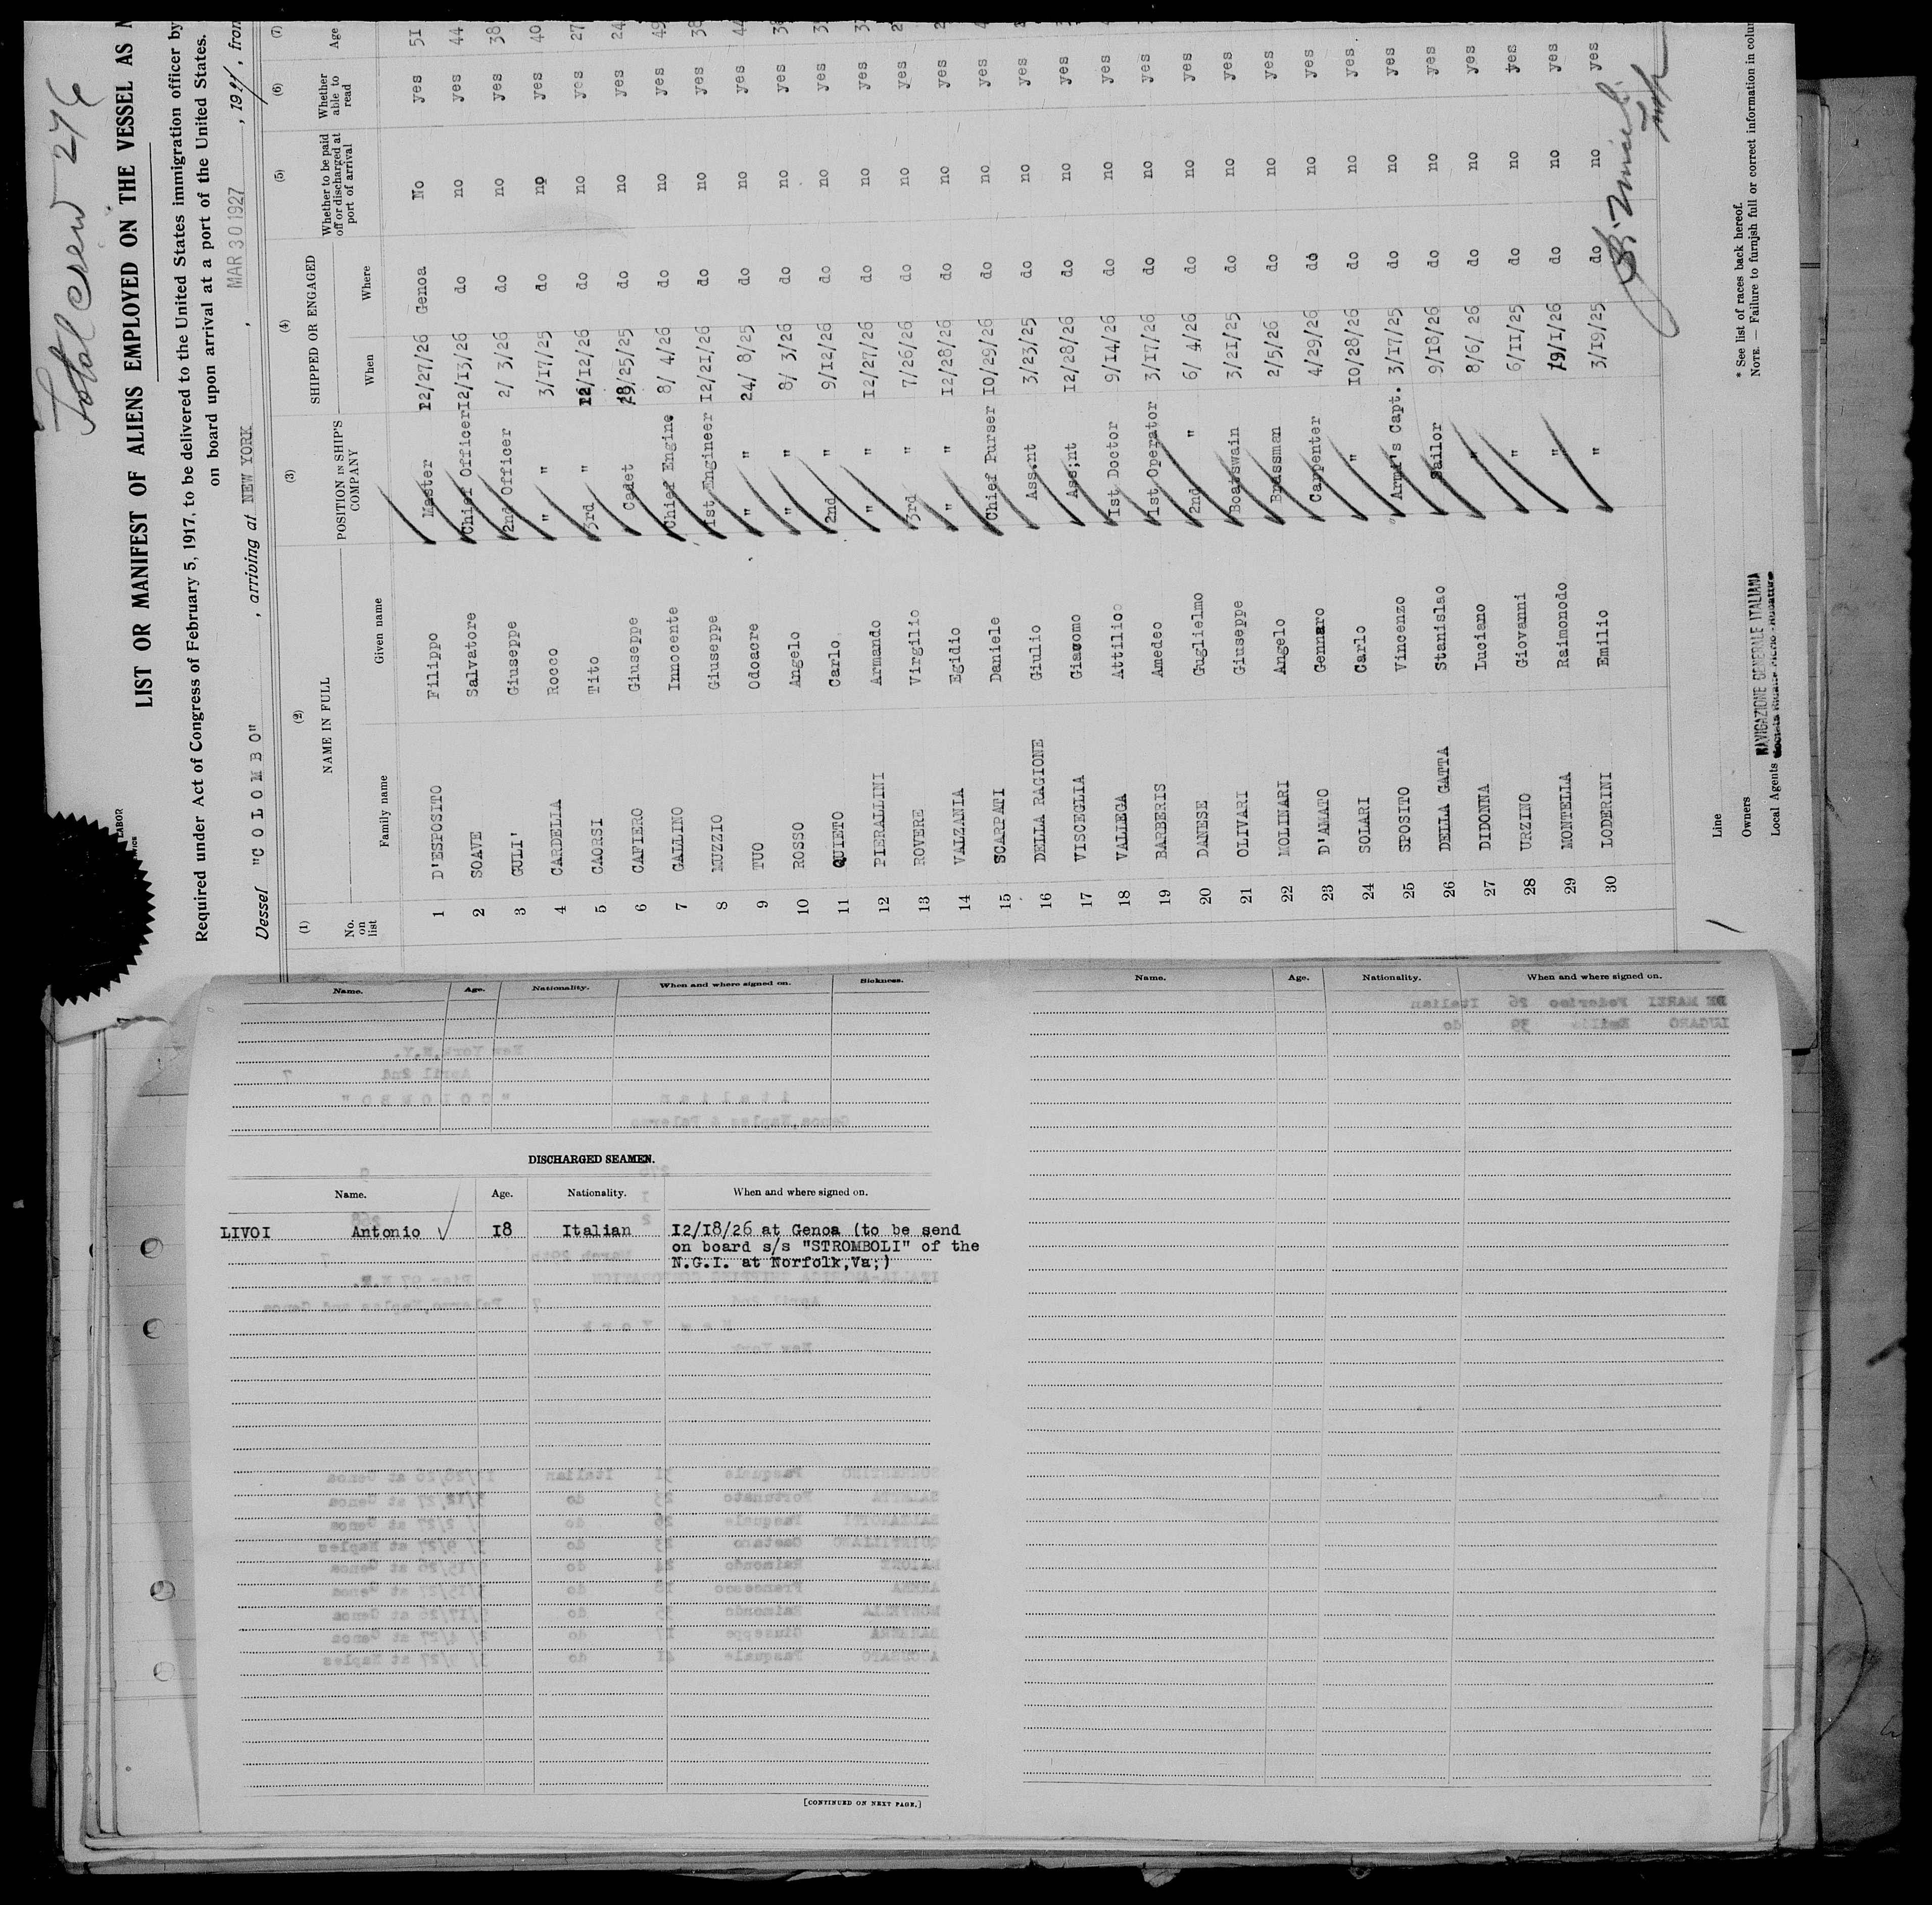 Total Crew 276
LIST OR MANIFEST OF ALIENS EMPLOYED ON THE VESSEL AS
Required under Act of Congress of February 5, 1917, to be delivered to the United States immigration officer by
on board upon arrival at a port of the United States.
Vessel "COLOMBO" , arriving at NEW YORK , MAR 30 1927 , 19 , from
(1) (2) (3) (4) (5) (6) (7)
No. on list NAME IN FULL POSITION IN SHIP'S COMPANY SHIPPED OR ENGAGED Whether to be paid off or discharged at port of arrival Whether able to read Age
Family name Given name When Where
1 D'ESPOSITO Filippo Master 12/27/26 Genoa No yes 51
2 SOAVE Salvatore Chief Officer 12/13/26 do no yes 44
3 GULI' Giuseppe 2nd Officer 2/ 3/26 do no yes 38
4 CARDELLA Rocco " " 3/17/25 do no yes 40
5 CAORSI Tito 3rd " 12/12/26 do no yes 27
6 CAFIERO Giuseppe Cadet /25/25 do no yes 24
7 GALLINO Innocente Chief Engine 8/ 4/26 do no yes 49
8 MUZZIO Giuseppe 1st Engineer 12/21/26 do no yes 38
9 TUO Odoacre " " 24/ 8/25 do no yes 44
10 ROSSO Angelo " " 8/ 3/26 do no yes
11 QUIETO Carlo 2nd " 9/12/26 do no yes
12 PIERALLINI Armando " " 12/27/26 do no yes
13 ROVERE Virgilio 3rd " 7/26/26 do no yes
14 VALZANIA Egidio " " 12/28/26 do no yes
15 SCARPATI Daniele Chief Purser 10/29/26 do no yes
16 DELLA RAGIONE Giulio Ass.nt 3/23/25 do no yes
17 VISCEGLIA Giacomo Ass;nt 12/28/26 do no yes
18 VALLEGA Attilio 1st Doctor 9/14/26 do no yes
19 BARBERIS Amedeo 1st Operator 3/17/26 do no yes
20 DANESE Guglielmo 2nd " 6/ 4/26 do no yes
21 OLIVARI Giuseppe Boatswain 3/21/25 do no yes
22 MOLINARI Angelo Brassman 2/5/26 do no yes
23 D'AMATO Gennaro Carpenter 4/29/26 do no yes
24 SOLARI Carlo " 10/28/26 do no yes
25 SPOSITO Vincenzo Arm's Capt. 3/17/25 do no yes
26 DELLA GATTA Stanislao Sailor 9/18/26 do no yes
27 DIDONNA Luciano " 8/6/ 26 do no yes
28 URZINO Giovanni " 6/11/25 do no yes
29 MONTELLA Raimonodo " /1/26 do no yes
30 LODERINI Emilio " 3/19/25 do no yes
Line
Owners NAVIGAZIONE GENERALE ITALIANA
Local Agents
* See list of races back hereof.
NOTE. — Failure to furnish full or correct information in colu
LABOR
Name. Age. Nationality. When and where signed on. Sickness.
DISCHARGED SEAMEN.
Name. Age. Nationality. When and where signed on.
LIVOI Antonio 18 Italian 12/18/26 at Genoa (to be send
on board s/s "STROMBOLI" of the
N.G.I. at Norfolk,Va;)
[CONTINUED ON NEXT PAGE.]
Name. Age. Nationality. When and where signed on.